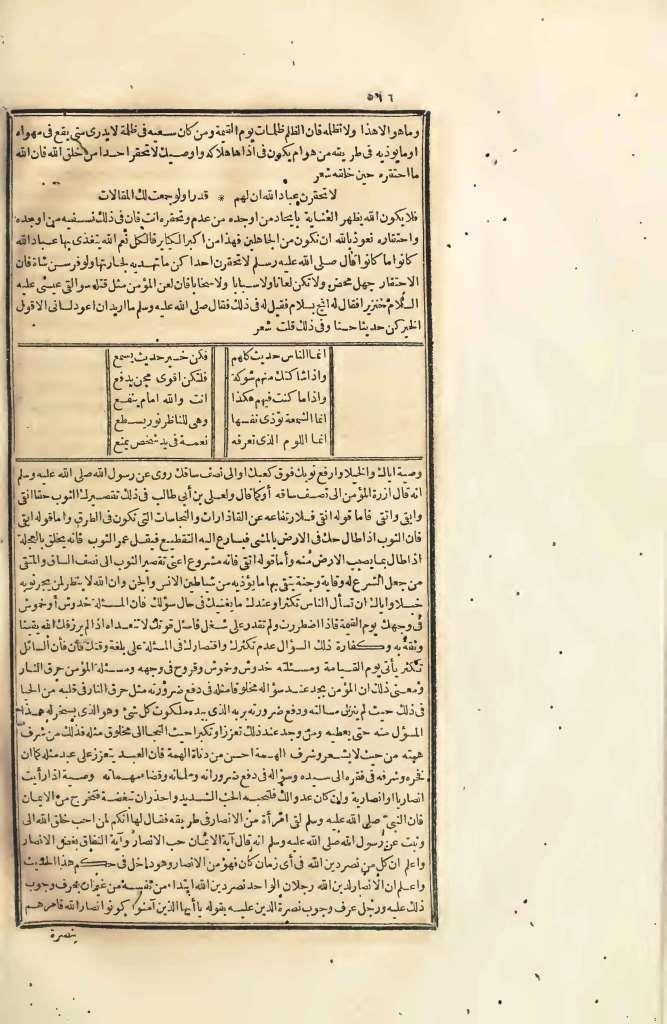 ٥٩٦
وما هو الا هذا ولا تظلمه فان الظلم ظلمات يوم القيمة ومن كان سعيه فى ظلمة لا يدرى متى يقع فى مهواه
او ما يوذيه فى طريقه من هوام يكون فى اذاها هلاكه واوصيك لا تحقر احدا من خلق الله فان الله
ما احتقره حين خلقه شعر
لا تحقرن عباد الله ان لهم * قدرا ولو جمعت لك المقالات
فلا يكون الله يظهر العناية بايجاد من اوجده من عدم وتحقره انت فان فى ذلك تسفيه من اوجده
واحتقاره نعوذ بالله ان نكون من الجاهلين فهذا من اكبر الكباير فالكل نعم الله يتغذى بها عباد الله
كانوا ما كانوا قال صلى الله عليه وسلم لا تحقرن احداكن ما تهديه لجارتها ولو فرسن شاة فان
الاحتقار جهل محض ولا تكن لعانا ولا سبابا ولا سخابا فان لعن المؤمن مثل قتله سوا لقى عيسى عليه
السلام خنزيرا فقال له انج بسلام فقيل له فى ذلك فقال صلى الله عليه وسلم ما اريد ان اعود لسانى الا قول
الخير كن حديثا حسنا وفى ذلك قلت شعر
انما الناس حديث كلهم فكن خير حديث يسمع
واذا شاكتك منهم شوكة فلتكن اقوى مجن يدفع
واذا ما كنت فيهم هكذا انت والله امام ينفع
انما الشمعة تؤذى نفسها وهى للناظر نور يسطع
انما اللوم الذى تعرفه نعمة فى يد شخص يمنع
وصية اياك والخيلا وارفع ثوبك فوق كعبيك او الى نصف ساقك روى عن رسول الله صلى الله عليه وسلم
انه قال ازرة المؤمن الى نصف ساقه أو كما قال ولعلى بن أبى طالب فى ذلك تقصيرك الثوب حقا انقى
وابقى واتقى فاما قوله انقى فلارتفاعه عن القاذورات والنجاسات التى تكون فى الطرق واما قوله ابقى
فان الثوب اذا طال حك فى الارض بالمشى فيسارع اليه التقطيع فيقل عمر الثوب فانه يخلق بالعجلة
اذا طال بما يصيب الارض منه وأما قوله اتقى فانه مشروع اعنى تقصير الثوب الى نصف الساق والمتقى
من جعل الشرع له وقاية وجنة يتقى بها ما يؤذيه من شياطين الانس والجن وان الله لا ينظر لمن يجر ثوبه
خيلا واياك ان تسأل الناس تكثرا وعندك ما يغنيك فى حال سؤلك فان المسئلة خدوش أو خموش
فى وجهك يوم القيمة فاذا اضطررت ولم تقدر على شغل فاسئل قوتك لا تتعداه اذا لم يرزقك الله يقينا
وثقة به وكفارة ذلك السؤال عدم تكثرك واقتصارك فى المسئلة على بلغة وقتك فان السائل
تكثرا يأتى يوم القيامة ومسئلته خدوش وخموش وقروح فى وجهه ومسئلة المؤمن حرق النار
ومعنى ذلك ان المؤمن يجد عند سؤاله مخلوقا مثله فى دفع ضرورته مثل حرق النار فى قلبه من الحيا
فى ذلك حيث لم ينزل مسالته ودفع ضرورته بربه الذى بيده ملكوت كل شئ وهو الذى يسخر له هذا
المسؤل منه حتى يعطيه ومن وجد عند ذلك تعززا وتكبرا حيث التجا الى مخلوق مثله فذلك من شرف
همته من حيث لا يشعر وشرف الهمة احسن من دناة الهمة فان العبد يتعزز على عبد مثله كما ان
فخره وشرفه فى فقره الى سيده وسؤاله فى دفع ضروراته وملماته وقضا مهماته وصية اذا رأيت
انصاريا او انصارية وان كان عدوا لك فلتحبه الحب الشديد واحذر ان تبغضه فتخرج من الايمان
فان النبى صلى الله عليه وسلم لقى امرأة من الانصار فى طريقه فقال لها انكم لمن احب خلق الله الى
وثبت عن رسول الله صلى الله عليه وسلم انه قال آية الايمان حب الانصار وآية النفاق بغض الانصار
واعلم ان كل من نصر دين الله فى أى زمان كان فهو من الانصار وهو داخل فى حكم هذا الحديث
واعلم ان الانصار لدين الله رجلان الواحد نصر دين الله ابتداء من نفسه من غير ان يعرف وجوب
ذلك عليه ورجل عرف وجوب نصرة الدين عليه بقوله يا أيها الذين آمنوا كونوا انصار الله فامرهم
بنصرة